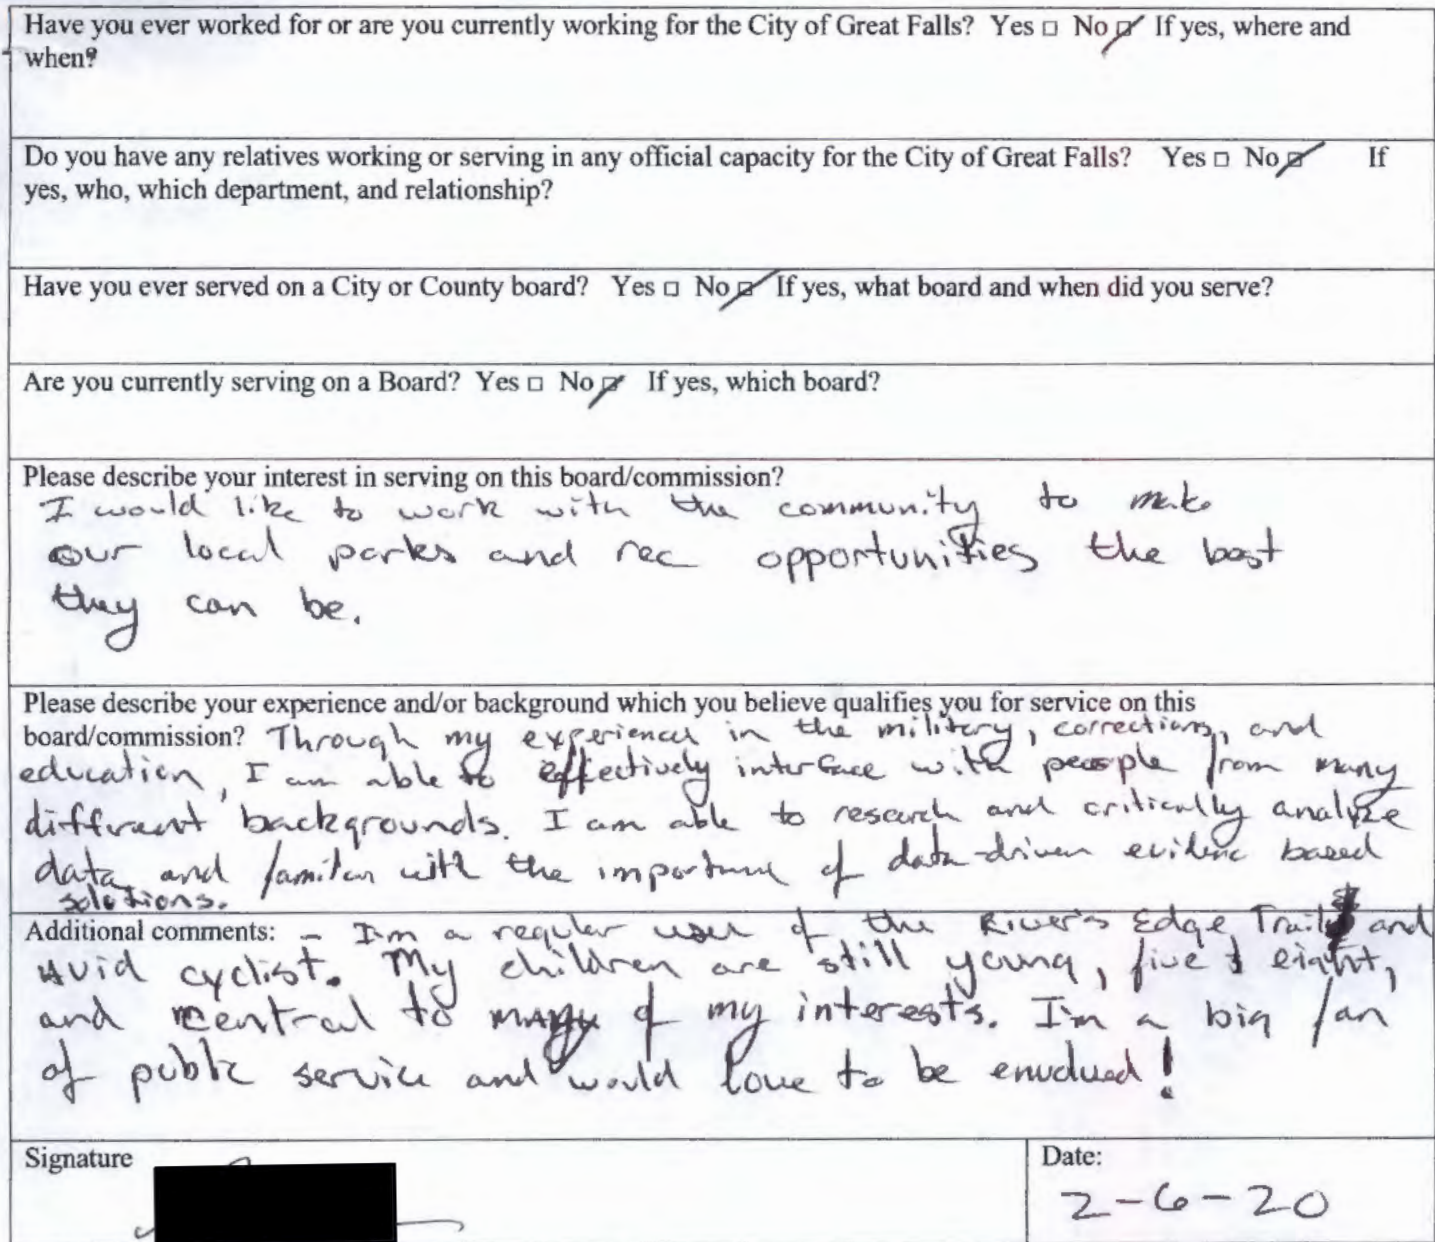 Have you ever worked for or are you currently working for the City of Great Falls? Yes □ No ☑ If yes, where and
when?
Do you have any relatives working or serving in any official capacity for the City of Great Falls? Yes □ No ☑ If
yes, who, which department, and relationship?
Have you ever served on a City or County board? Yes □ No ☑ If yes, what board and when did you serve?
Are you currently serving on a Board? Yes □ No ☑ If yes, which board?
Please describe your interest in serving on this board/commission?
I would like to work with the community to make
our local parks and rec opportunities the best
they can be.
Please describe your experience and/or background which you believe qualifies you for service on this
board/commission? Through my experience in the military, corrections, and
education, I am able to effectively interface with people from many
different backgrounds. I am able to research and critically analyze
data and familiar with the importance of data-driven evidence based
solutions.
Additional comments: - I'm a regular user of the River's Edge Trail and
avid cyclist. My children are still young, five & eight,
and central to many of my interests. I'm a big fan
of public service and would love to be involved!
Signature
Date:
2-6-20